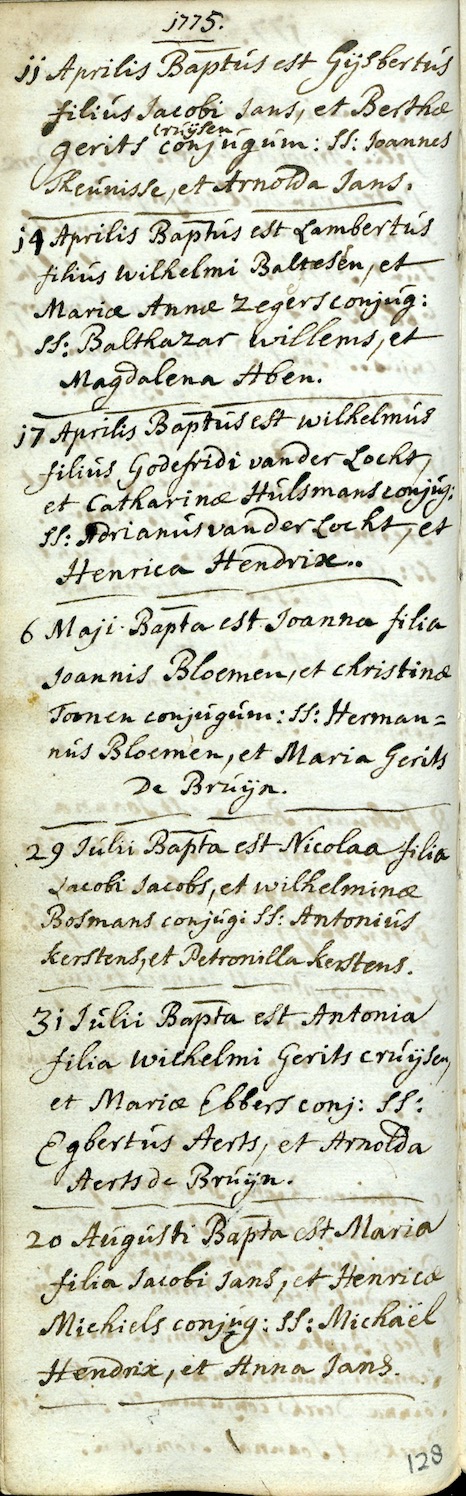 1775.
11 Aprilis Baptus est Gijsbertus
filius Jacobi Jans, et Berthæ
cruijsen
gerits conjugum: SS: Joannes
Skeunisse, et Arnolda Jans.
14 Aprilis Baptus est Lambertus
filius wilhelmi Baltesen, et
Mariæ Annæ Zegers conjug:
SS: Balthazar willems, et
Magdalena Aben.
17 Aprilis Baptus est wilhelmus
filius Godefridi vander Locht,
et Catharinæ Hulsmans conjug:
SS: Adrianus vander Locht, et
Henrica Hendrix..
6 Maji Bapta est Joanna filia
Joannis Bloemen, et christinæ
Toonen conjugum: SS: Herman=
nus Bloemen, et Maria Gerits
De Bruijn.
29 Julii Bapta est Nicolaa filia
Jacobi Jacobs, et wilhelminæ
Bosmans conjug: SS: Antonius
kerstens, et Petronilla kerstens.
31 Julii Bapta est Antonia
filia wilhelmi Gerits cruijsen,
et Mariæ Ebbers conj: SS:
Egbertus Aerts, et Arnolda
Aerts de Bruijn.
20 Augusti Bapta est Maria
filia Jacobi Jans, et Henricæ
Michiels conjug: SS: Michaël
Hendrix, et Anna Jans.
128